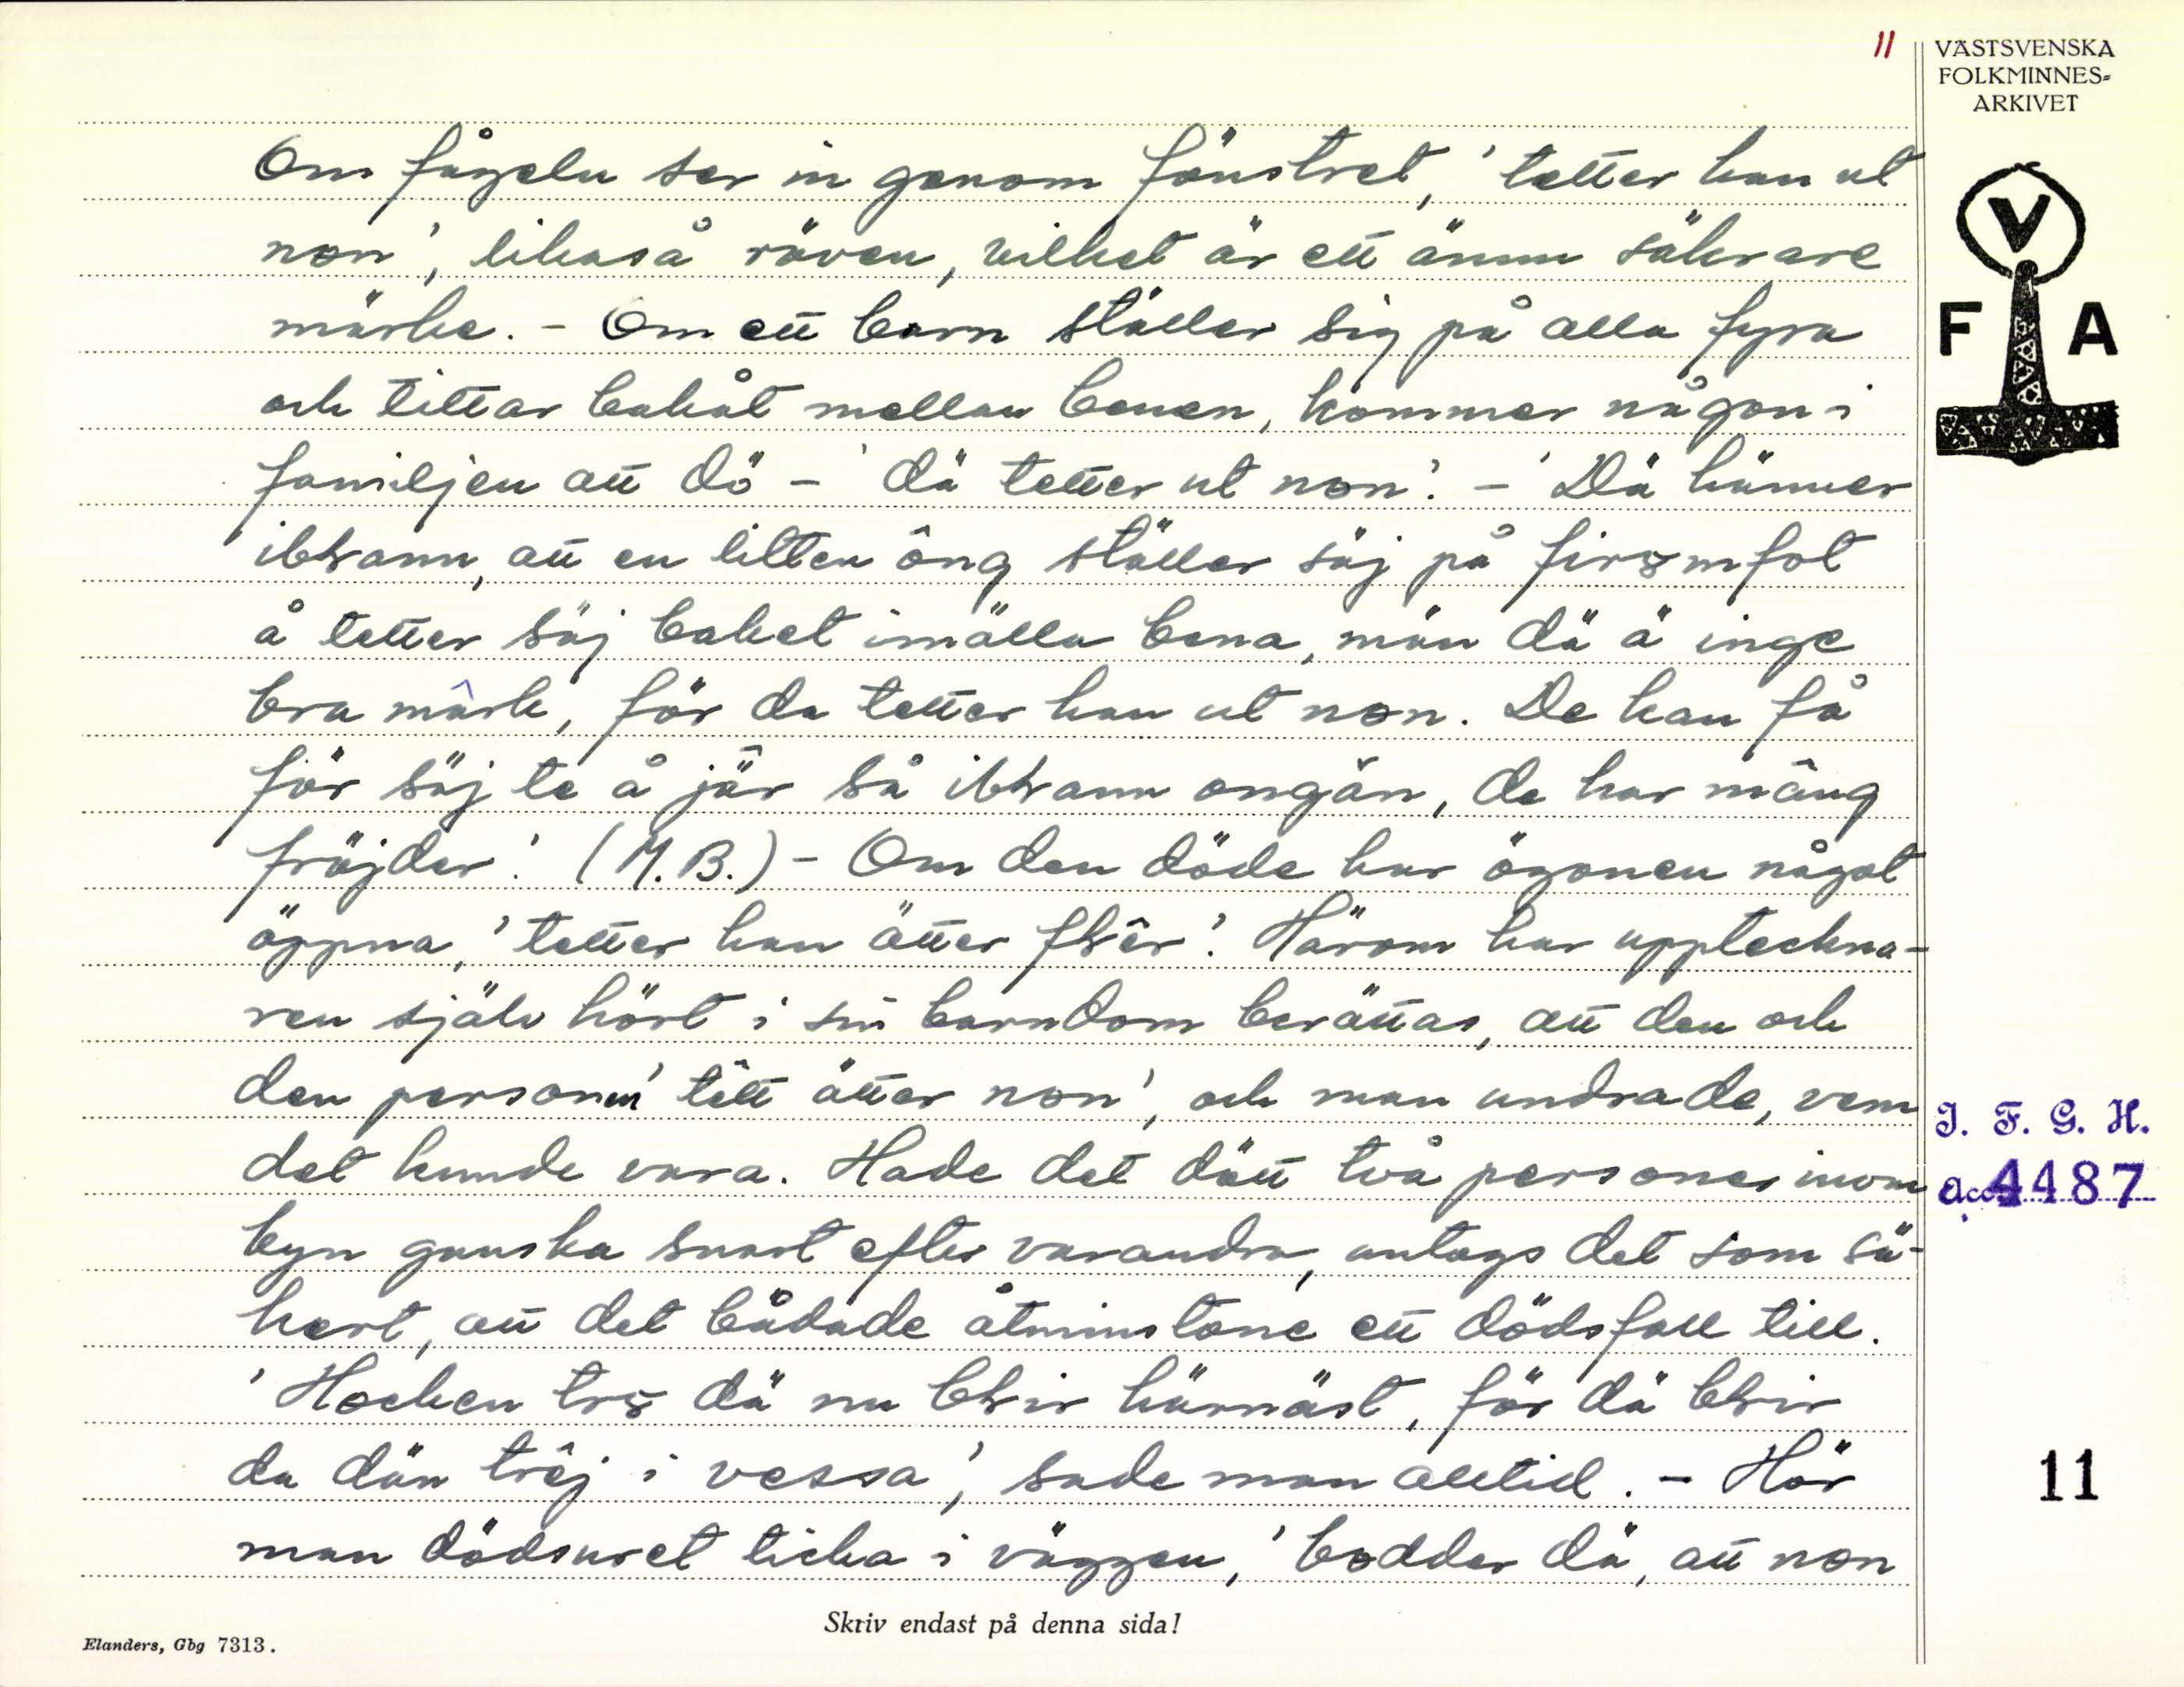 11
VÄSTSVENSKA
FOLKMINNES-
ARKIVET
V
F A
Om fågeln ser in genom fönstret, 'tetter han ut
non', likaså räven, vilket är ett ännu säkrare
märke. - Om ett barn ställer sig på alla fyra
och tittar bakåt mellan benen, kommer någon i
familjen att dö - 'dä tetter ut non'. - 'Dä hänner
ibłann, att en litten ông ställer säj på firømfot
å tetter säj baket imälla bena, män dä ä inge
bra märk, för da tetter han ut non. De kan få
för säj te å jâ̈r så ibłann ongän, de har mâng
fröjder'. (M.B.) - Om den döde har ögonen något
öppna, 'tetter han ätter fłêr'. Härom har uppteckna-
ren själv hört i sin barndom berättas, att den och
den personen 'têtt ätter non', och man undrade, vem
det kunde vara. Hade det dött två personer inom
byn ganska snart efter varandra, antogs det som sä-
kert, att det bådade åtminstone ett dödsfall till.
'Hocken trø dä nu błir härnäst, för dä błir
da dän trêj i vessa', sade man alltid. - Hör
man dödsuret ticka i väggen, 'bodder dä, att non
J. F. G. H.
acc. 4487
11
Skriv endast på denna sida!
Elanders, Gbg 7313.